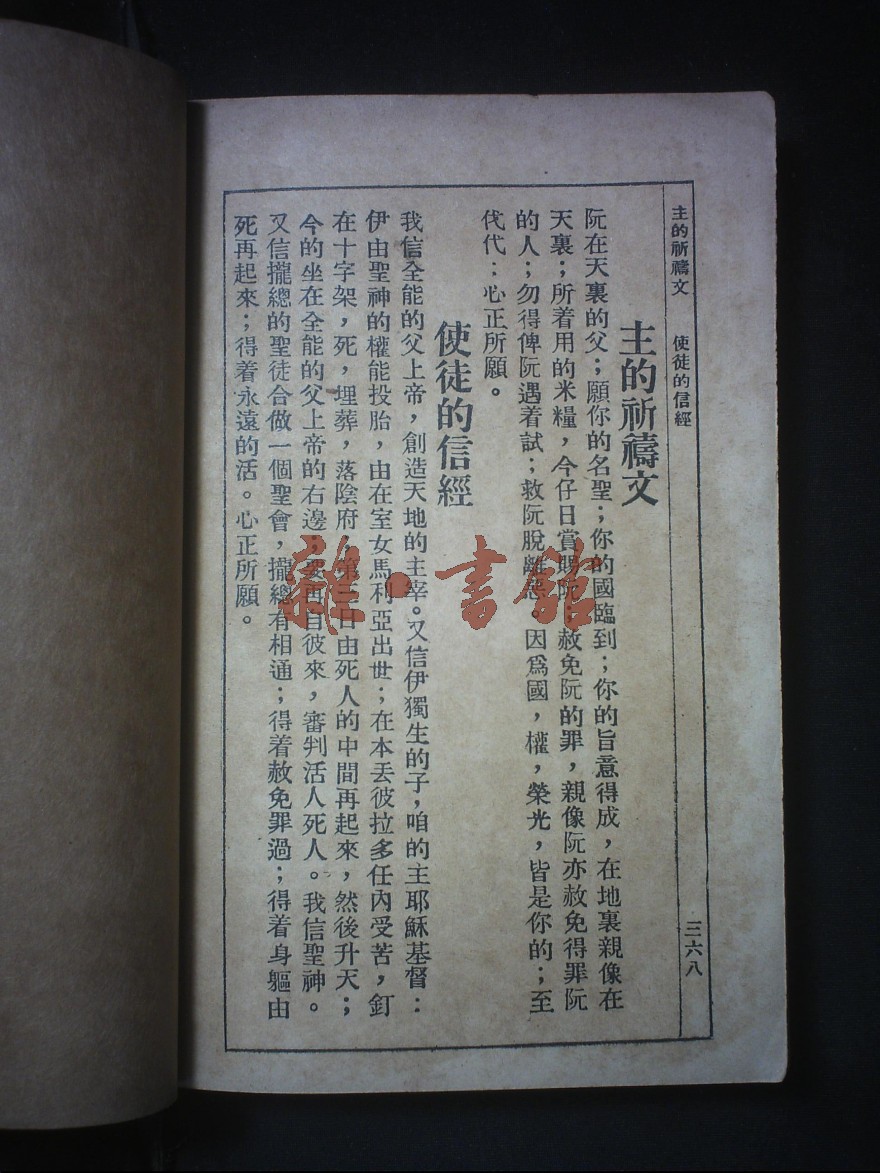 主的祈禱文　使徒的信經
三六八
主的祈禱文
阮在天裏的父；願你的名聖；你的國臨到；你的旨意得成，在地裏親像在
天裏；所着用的米糧，今仔日賞賜阮；赦免阮的罪，親像阮亦赦免得罪阮
的人；勿得俾阮遇着試；救阮脫離惡。因爲國，權，榮光，皆是你的；至
代代；心正所願。
使徒的信經
我信全能的父上帝，創造天地的主宰。又信伊獨生的子，咱的主耶穌基督：
伊由聖神的權能投胎，由在室女馬利亞出世；在本丟彼拉多任內受苦，釘
在十字架，死，埋葬，落陰府 第三日由死人的中間再起來，然後升天；
今的坐在全能的父上帝的右邊；要再自彼來，審判活人死人。我信聖神。
又信攏總的聖徒合做一個聖會，攏總有相通；得着赦免罪過；得着身軀由
死再起來；得着永遠的活。心正所願。
雜·書館